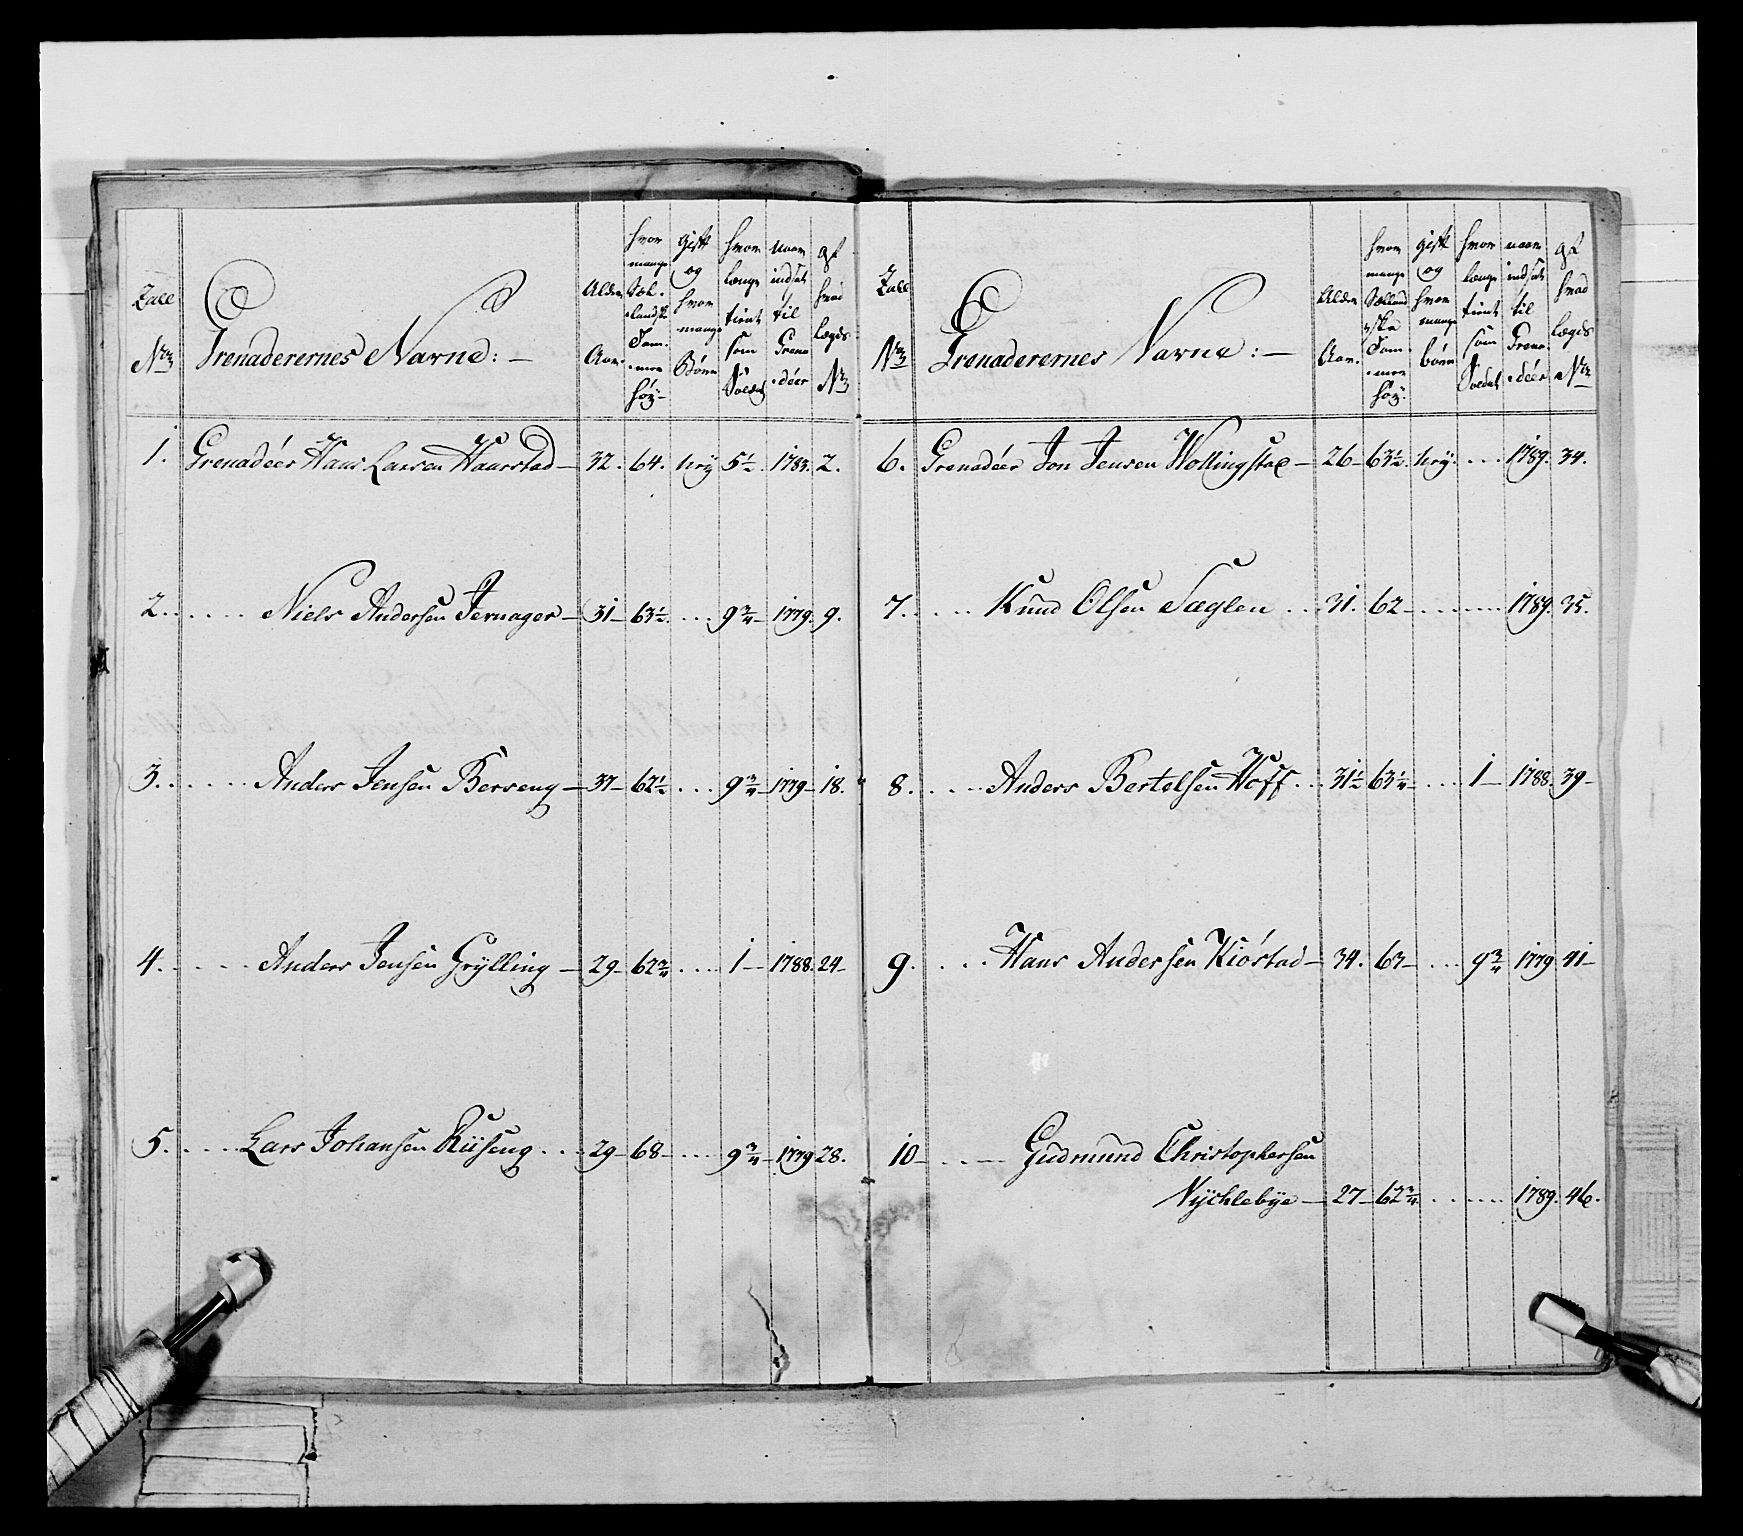 Tall
No
Grenaderernes Navne: —
Alder
Aar.
hvor
mange
Sæl-
landsk
Tom-
mer
høy-
gift
og
hvor
mange
Børn
hvor
længe
tient
som
Soldat
naar
indsat
til
Grena
-déer
af
hvad
lægds
No
1. Grenadéer Hans Larsen Haarstad — 32. 64. kry 5½. 1783. 2.
2. . . . . . Niels Andersen Jernager — 31 — 63½. . . . 9¾ — 1779. 9.
3. . . . . . Anders Jensen Berseng — 37 — 62½. . . . 9¾ — 1779 — 18.
4. . . . . . Anders Jensen Grÿlling — 29 — 62¾. . . . 1 — 1788. 24 —
5. . . . . Lars Johansen Riiseng. . . . 29 — 68 — . . . 9¾ — 1779 28.
Tall
No
Grenaderernes Navne: —
Alder
Aar.
hvor
mange
Sælland
ske
Tom-
mer
høy.
gift
og
hvor
mange
børn
hvor
længe
tient
som
Soldat
naar
indsat
til
Grena-
déer
af
hvad
lægds
No
6. Grenadéer Jon Jensen Wollingstad — 26 — 63½. kry. . . . 1789. 34.
7. . . . . Knud Olsen Sæglen . . 31. 62 — . . . . . . 1789. 35.
8. . . . . Anders Bertelsen Hoff. . . 31½ 63¼ — . . . 1 — 1788. 39 —
9. . . . . Hans Andersen Kiøstad — 34. 63 — . . . 9¾ 1779 41 —
10 — . . . — Gudmund Christophersen
Nÿchlebÿe — 27 — 62¾. . . . . . . 1789. 46.